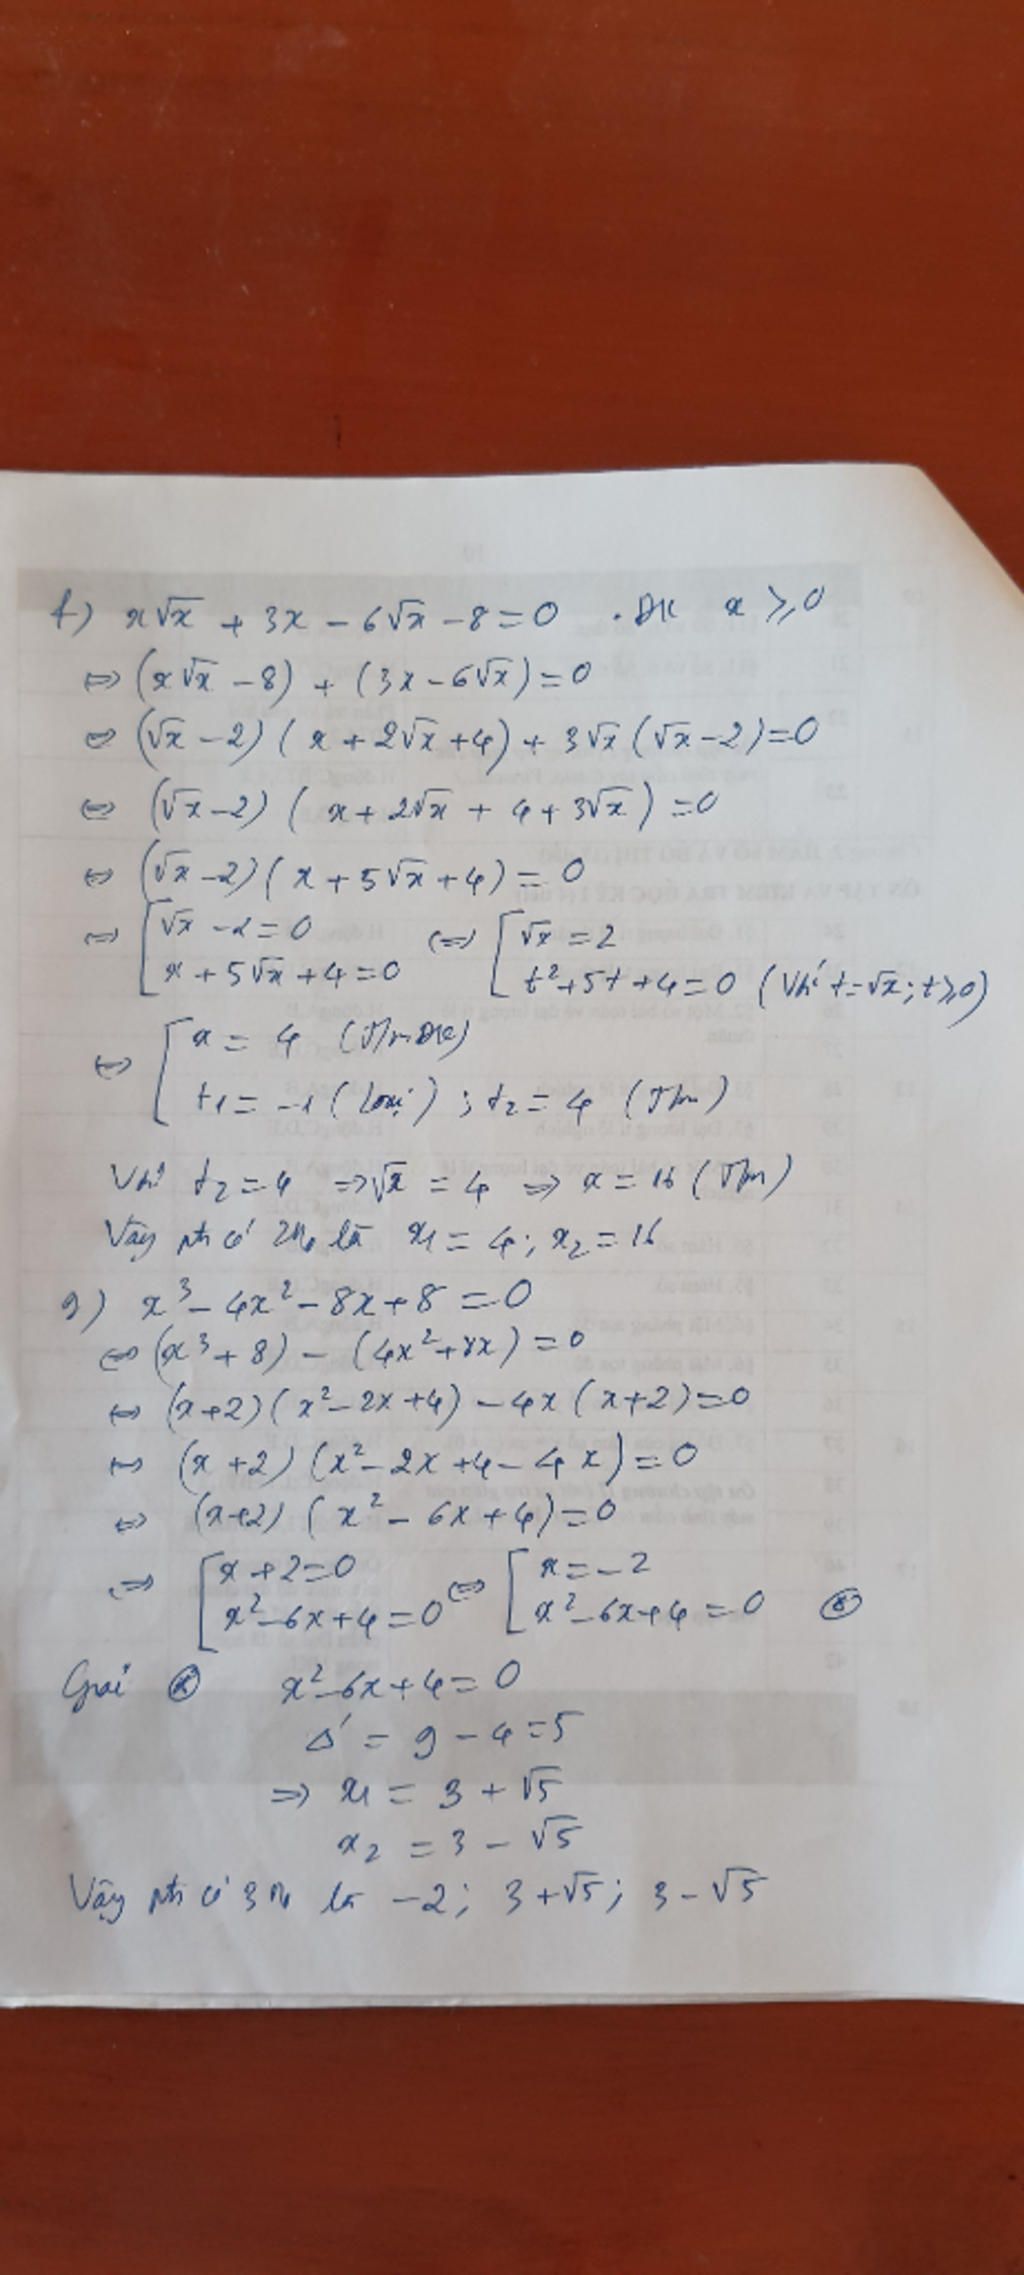 f) x√x + 3x - 6√x - 8 = 0 . ĐK x ≥ 0
⇔ (x√x - 8) + (3x - 6√x) = 0
⇔ (√x - 2) (x + 2√x + 4) + 3√x (√x - 2) = 0
⇔ (√x - 2) (x + 2√x + 4 + 3√x) = 0
⇔ (√x - 2) (x + 5√x + 4) = 0
⇔ [ √x - 2 = 0 ⇔ [ √x = 2
x + 5√x + 4 = 0 t² + 5t + 4 = 0 (Với t = √x; t ≥ 0)
⇔ [ x = 4 (TmĐK)
t1 = -1 (loại) ; t2 = 4 (Tm)
Với t2 = 4 ⇒ √x = 4 ⇒ x = 16 (Tm)
Vậy pt có 2No là x1 = 4; x2 = 16
g) x³ - 4x² - 8x + 8 = 0
⇔ (x³ + 8) - (4x² + 8x) = 0
⇔ (x + 2) (x² - 2x + 4) - 4x (x + 2) = 0
⇔ (x + 2) (x² - 2x + 4 - 4x) = 0
⇔ (x + 2) (x² - 6x + 4) = 0
⇔ [ x + 2 = 0 ⇔ [ x = -2
x² - 6x + 4 = 0 x² - 6x + 4 = 0 (*)
Giải (*) x² - 6x + 4 = 0
Δ' = 9 - 4 = 5
⇒ x1 = 3 + √5
x2 = 3 - √5
Vậy pt có 3No là -2; 3 + √5; 3 - √5